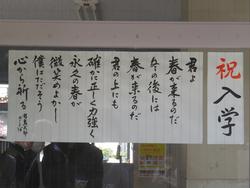 祝
入学
君よ
春が来るのだ
冬の後には
春が来るのだ
君の上にも
確かに正しく力強く
永久の春が
微笑めよかし
僕はただそう
心から祈る